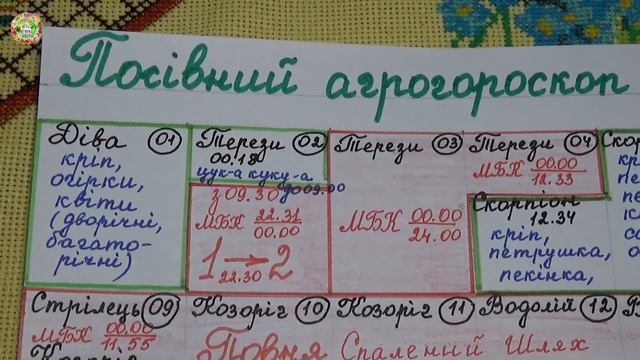 Посівний агрогороскоп
Діва 01
кріп,
огірки,
квіти
(дворічні,
багато-
річні)
Терези 02
00.18
цук-а куку-а
з 09.30 до 09.00
МБК 22.31
00.00
1 → 2
22.30
Терези 03
МБК 00.00
24.00
Терези 04
МБК 00.00
12.33
Скорпіон
12.34
кріп,
петрушка,
пекінка,
Стрілець 09
МБК 00.00
11.55
Козоріг
Козоріг 10
Козоріг 11
Водолій 12
Повня Спалений Шлях